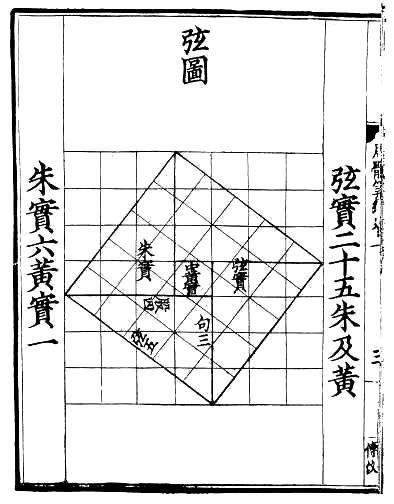 弦圖
弦實二十五朱及黃
朱實六黃實一
朱實
黃實
弦實
句三
股四
弦五
三